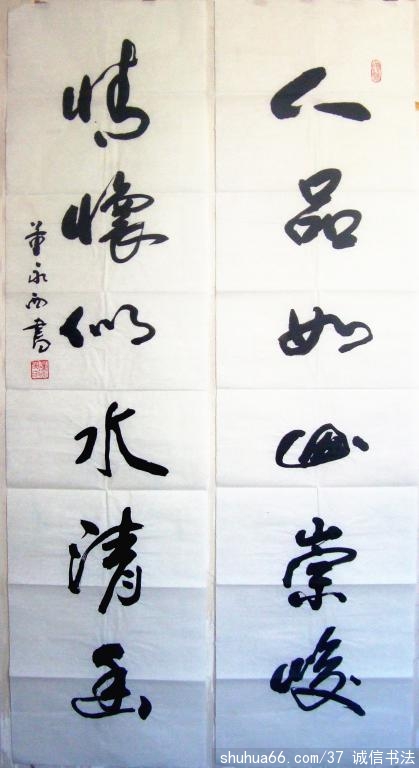 人品如山崇峻
情懷似水清幽
董永西書
shuhua66.com/37 诚信书法